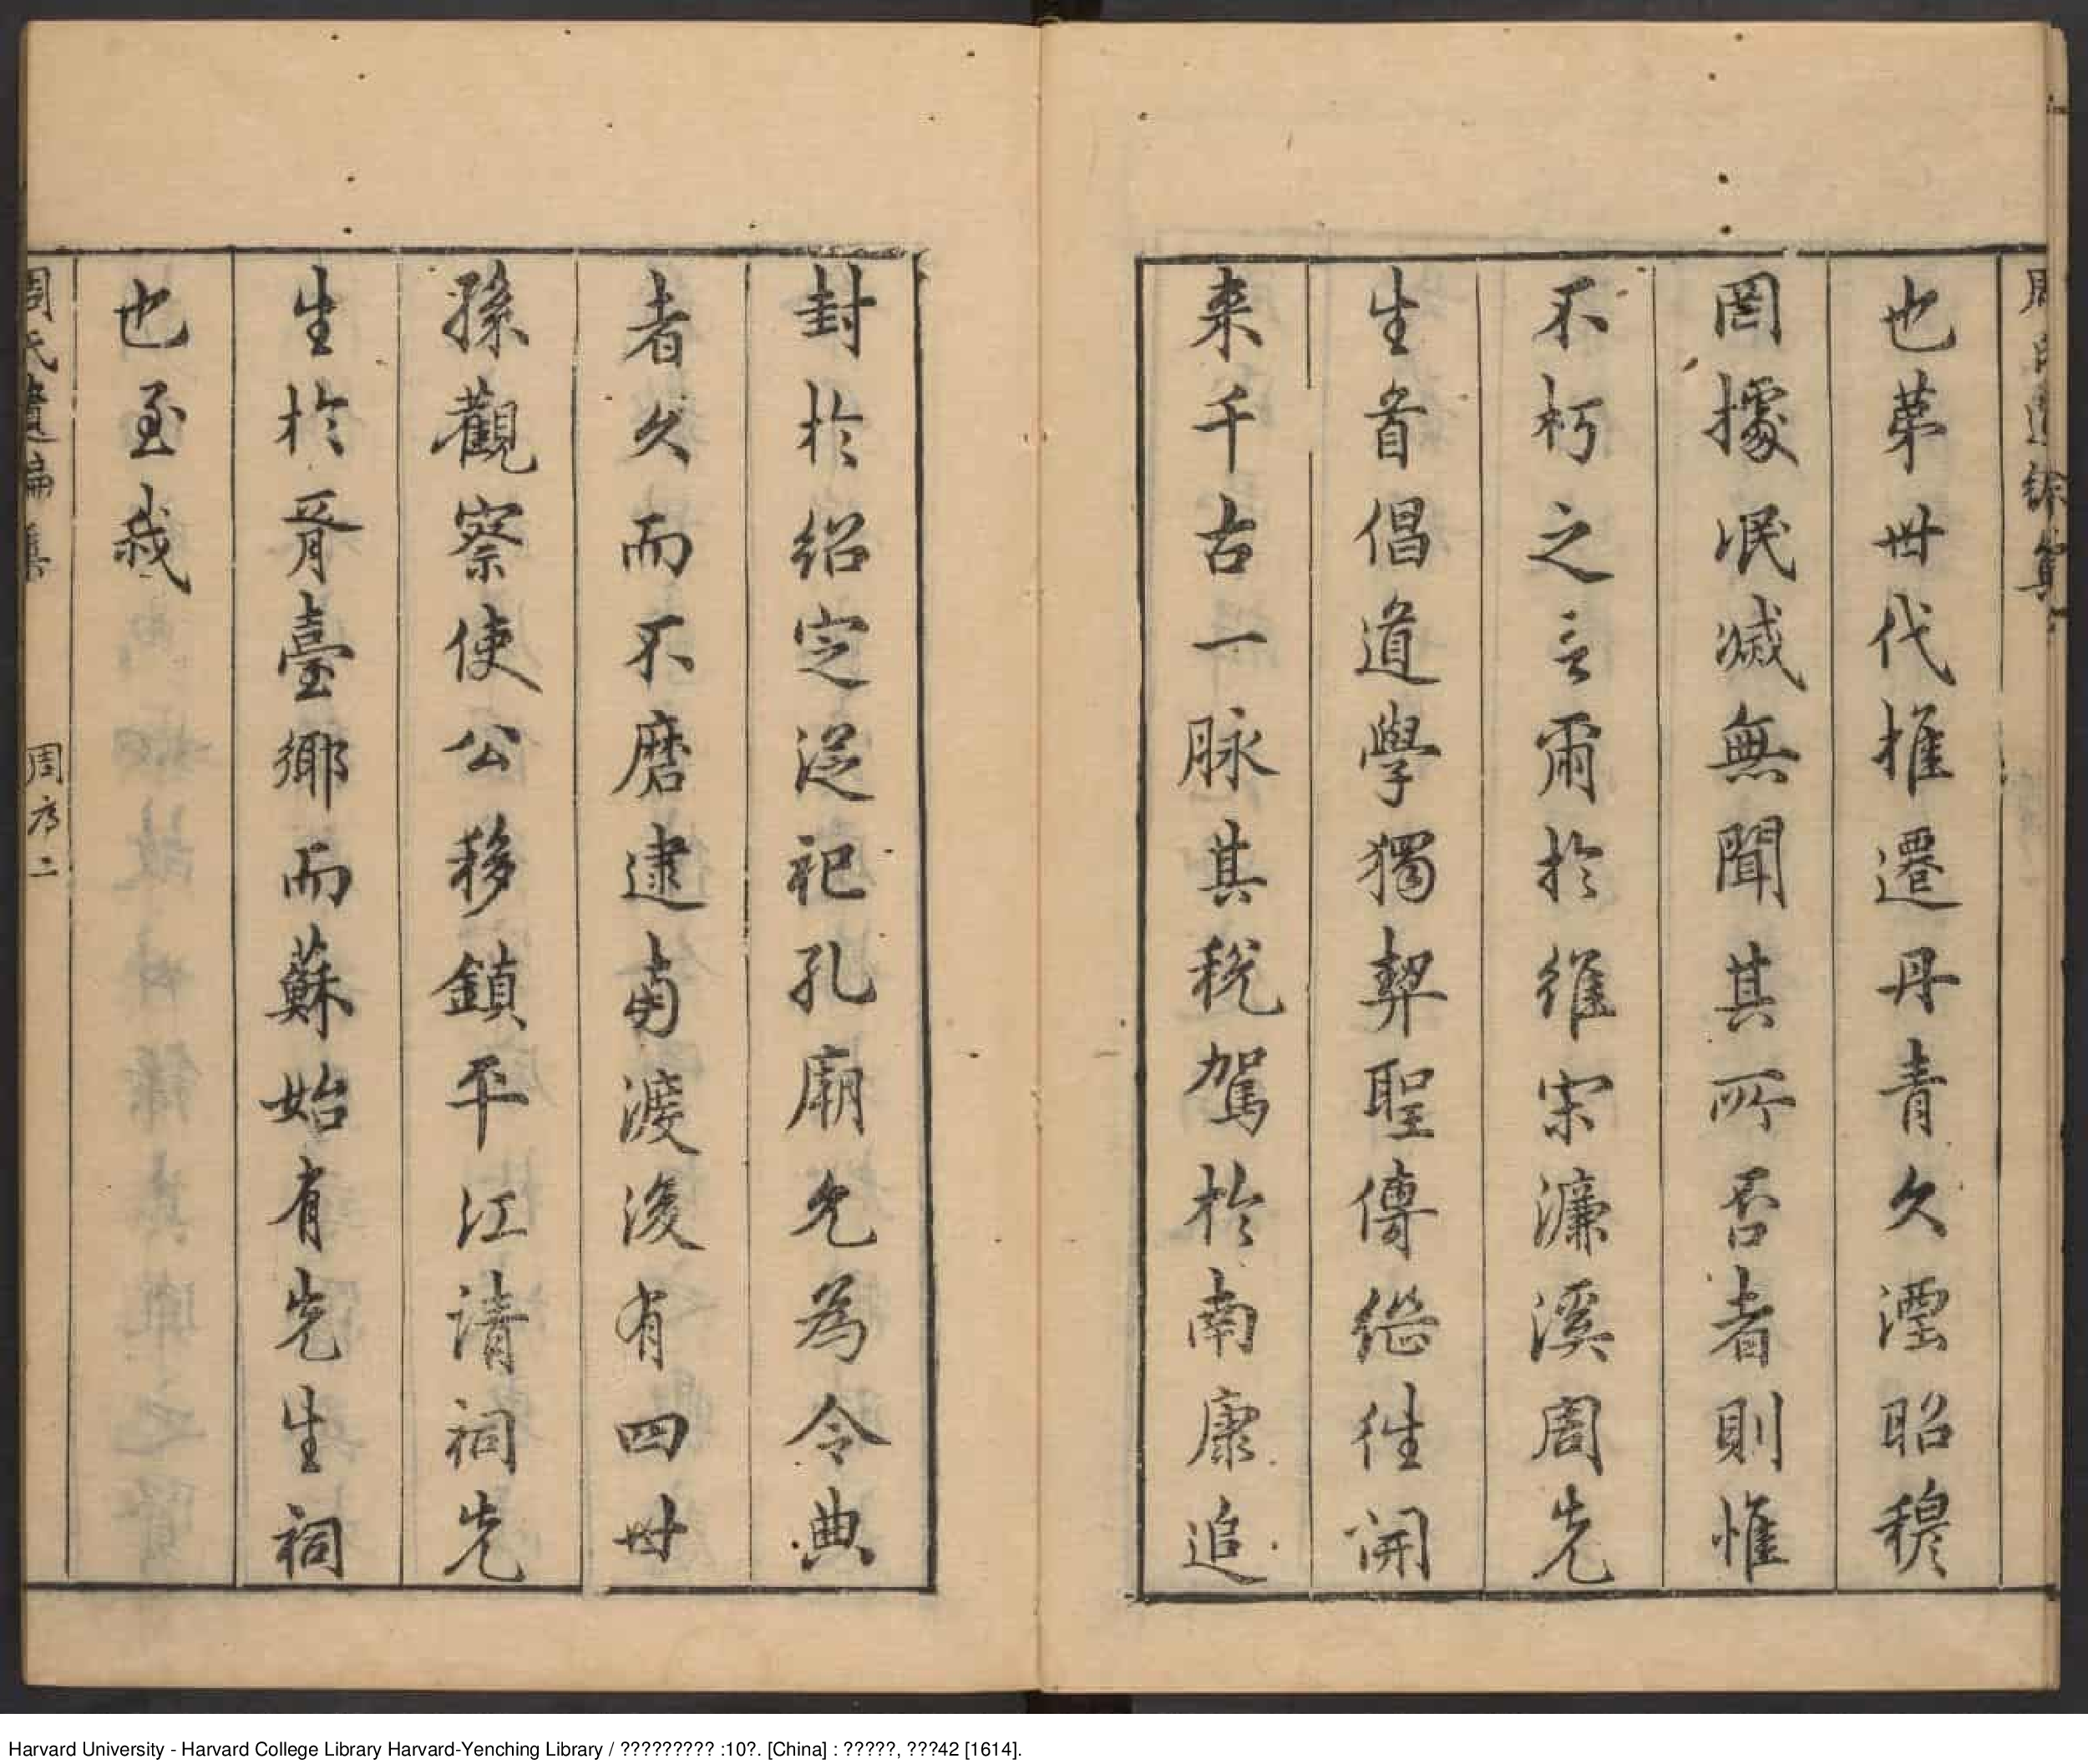 也苐世代推遷丹青久湮昭穆
罔據泯滅無聞其所否者則惟
不朽之言爾於維宋濂溪周先
生首倡道學獨契聖傳繼徃開
来千古一脉其稅駕於南康追
封於紹定從祀孔廟允為令典
者久而不磨逮南渡後有四世
孫觀察使公移鎮平江請祠先
生於胥臺鄉而蘇始有先生祠
也至哉
周氏遺編集
周序二
Harvard University - Harvard College Library Harvard-Yenching Library / ????????? :10?. [China] : ?????, ???42 [1614].